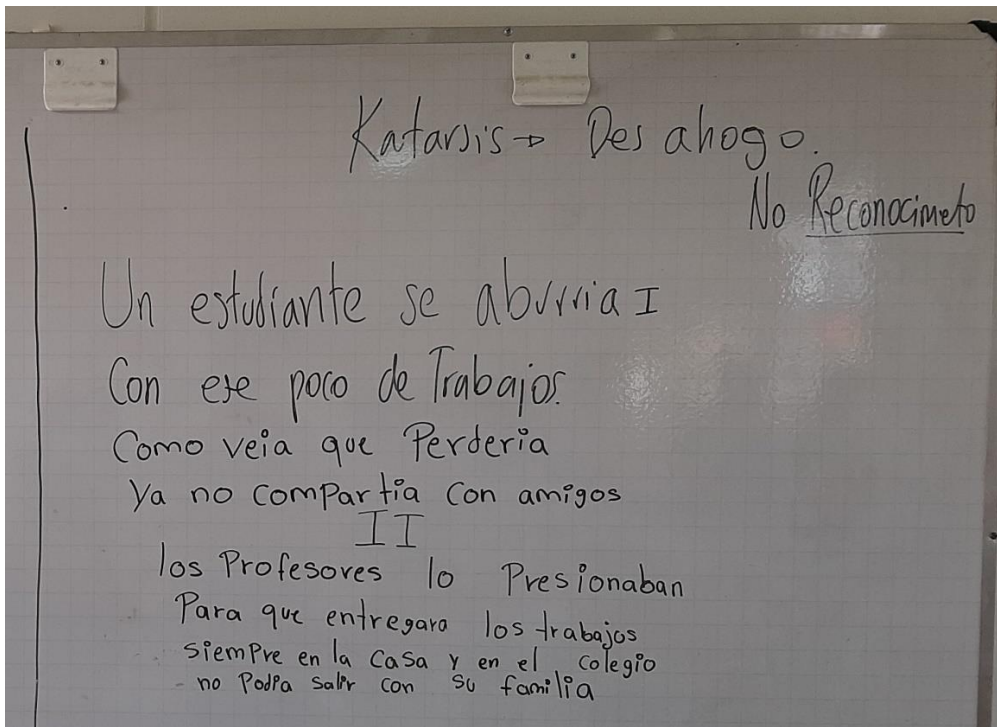 Katarsis → Des ahogo.
No Reconocimeto
Un estudiante se aburria I
Con ese poco de Trabajos.
Como veia que Perderia
Ya no compartia con amigos
II
los Profesores lo Presionaban
Para que entregara los trabajos
siempre en la casa y en el colegio
no Podia salir con su familia